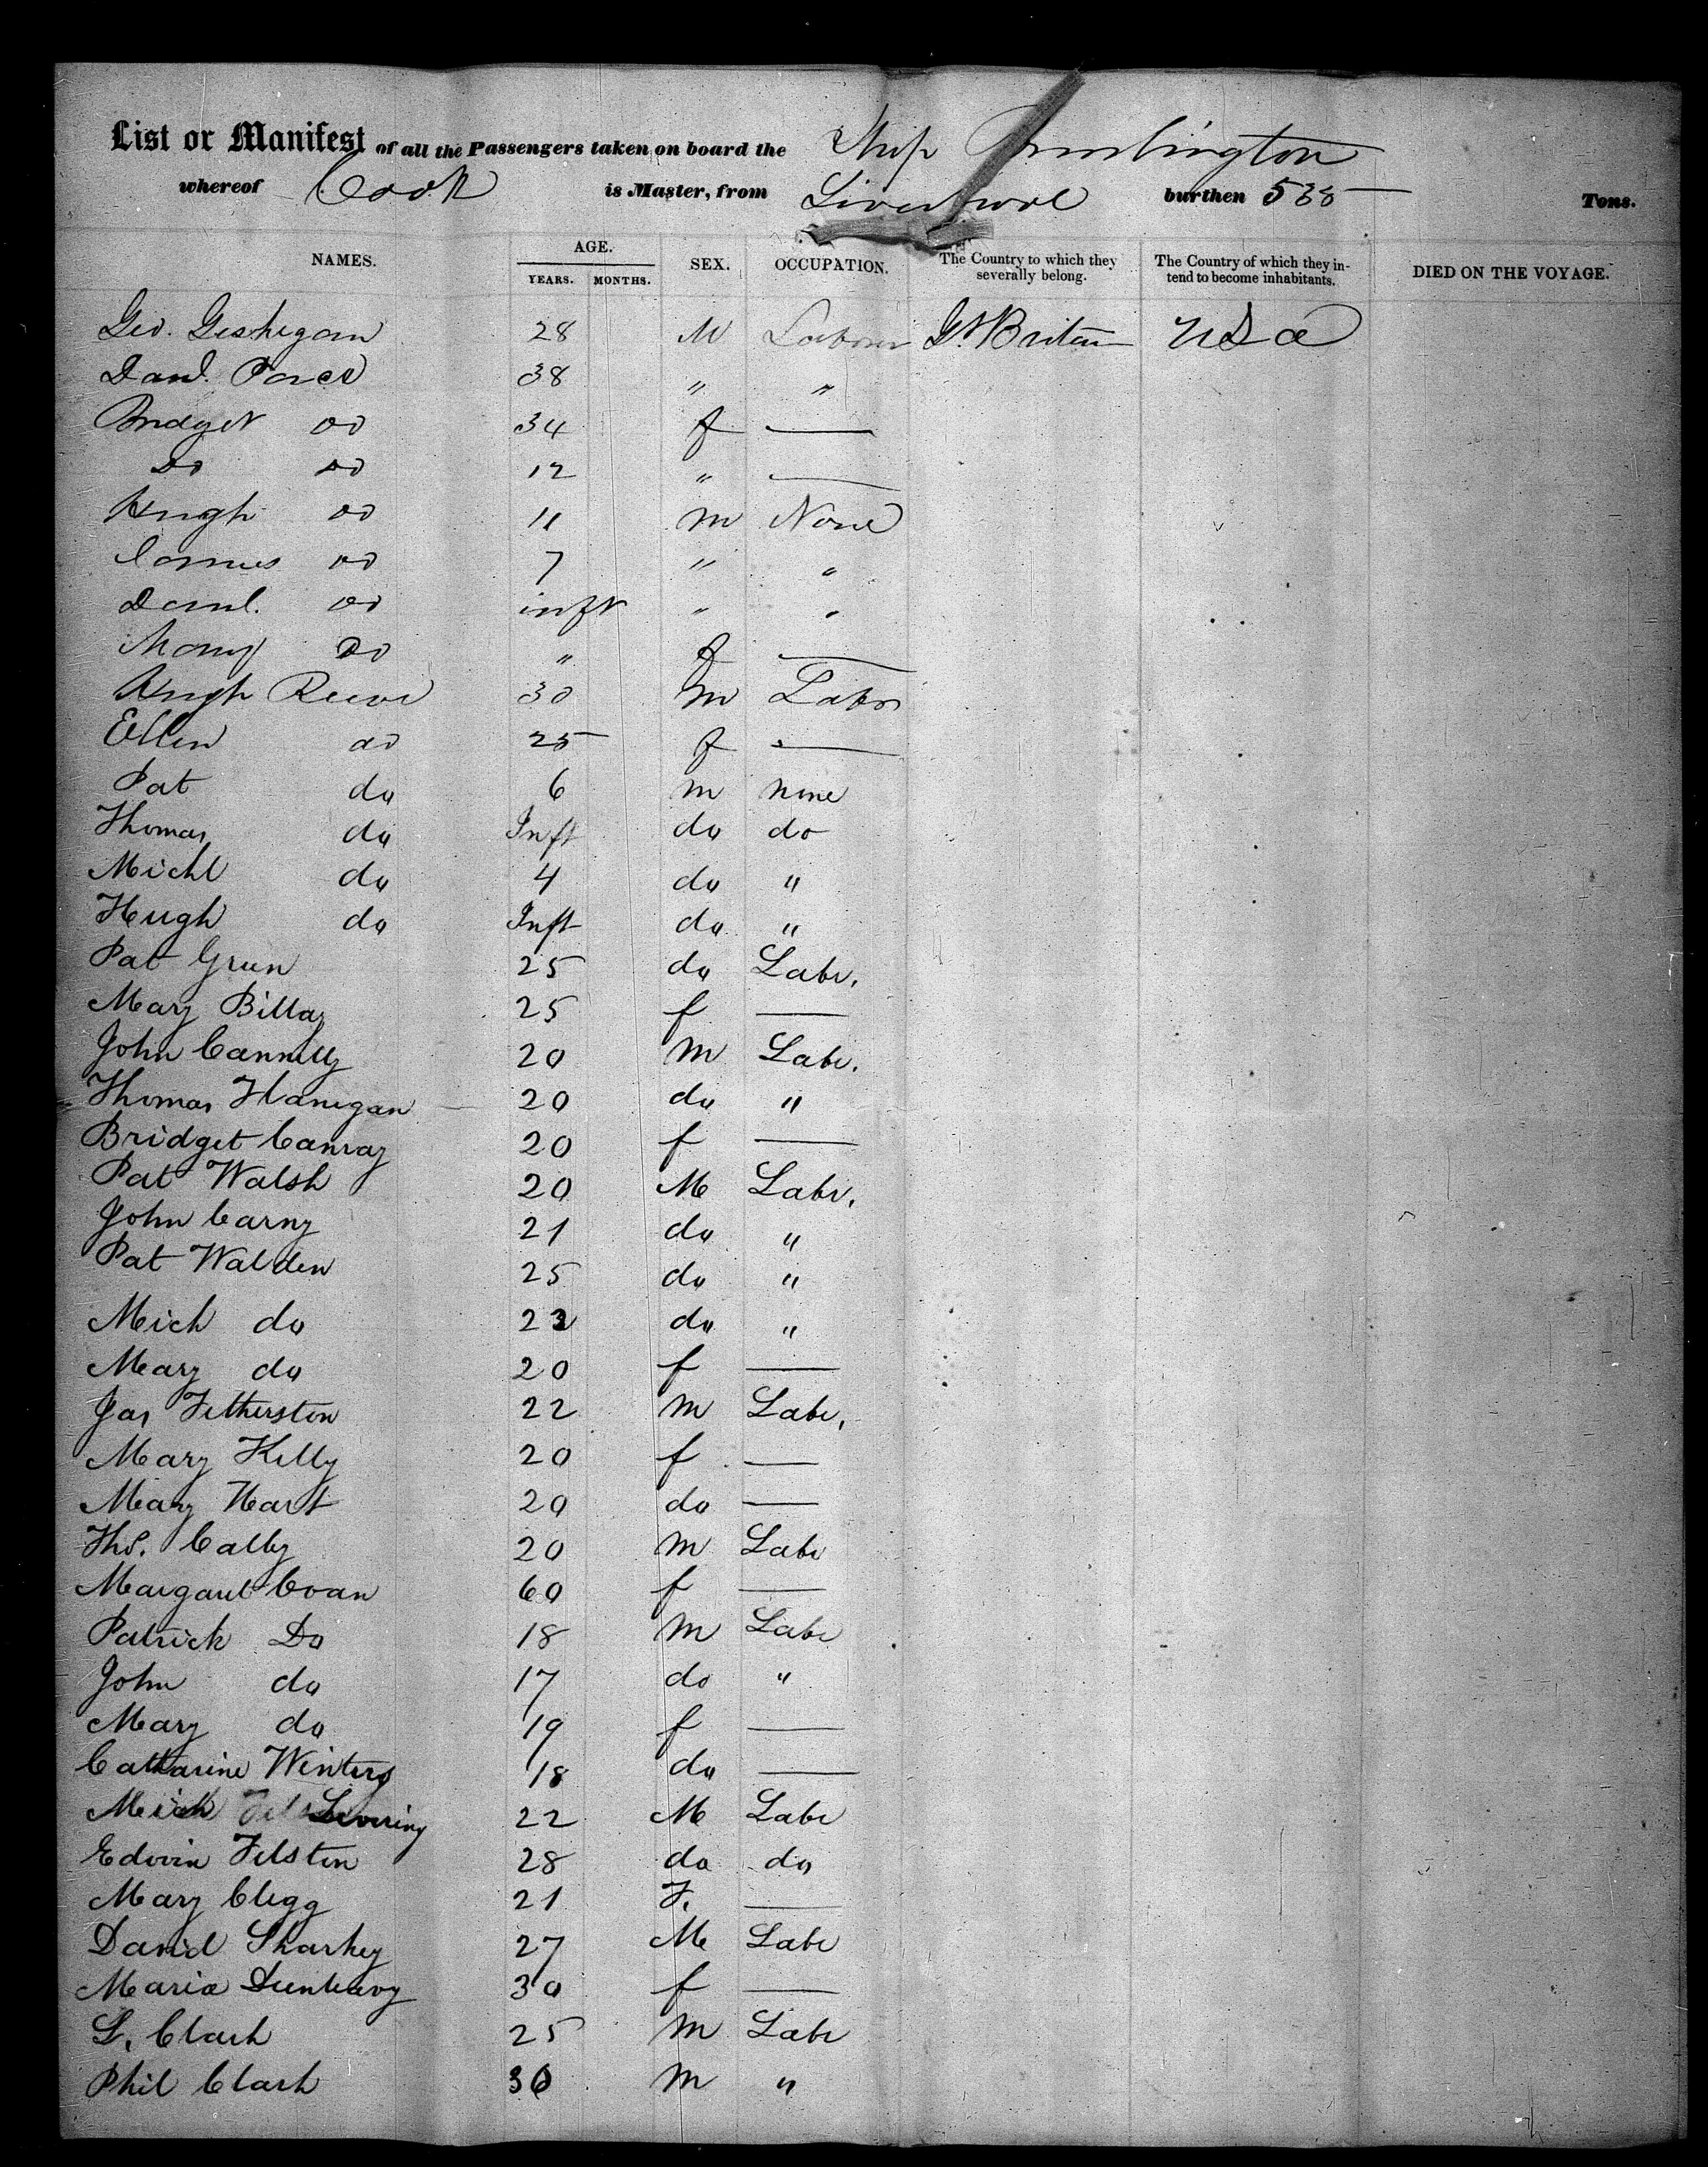 List or Manifest of all the Passengers taken on board the Ship Burlington
whereof Cook is Master, from Liverpool burthen 535 Tons.
NAMES. AGE. YEARS. MONTHS. SEX. OCCUPATION. The Country to which they severally belong. The Country of which they intend to become inhabitants. DIED ON THE VOYAGE.
Geo. 28 M Labour Gt Britain USa
Danl. 38 " "
Bridget do 34 f —
Do do 12 " —
Hugh do 11 m None
do 7 " "
Danl. do inft " "
Mary Do " f —
Hugh 30 m Labr
Ellen do 25 f —
Pat do 6 m none
Thomas do Inft do do
Michl do 4 do "
Hugh do Inft do "
Pat Green 25 do Labr.
Mary Billay 25 f —
John Connelly 20 M Labr.
Thomas Flanegan 20 do "
Bridget Conray 20 f —
Pat Walsh 20 M Labr.
John Carny 21 do "
Pat Walden 25 do "
Mich do 23 do "
Mary do 20 f —
Jas Fetherston 22 m Labr.
Mary Kelly 20 f —
Mary Hart 20 do —
Ths. Calby 20 m Labr
Margaret Coan 60 f —
Patrick Do 18 m Labr
John do 17 do "
Mary do 19 f —
Catharine Winters 18 do —
Mich 22 M Labr
Edwin Felsten 28 do do
Mary Clegg 21 F. —
David Sharkey 27 M Labr
Maria Dunleavy 30 f —
L. Clark 25 m Labr
Phil Clark 30 m "